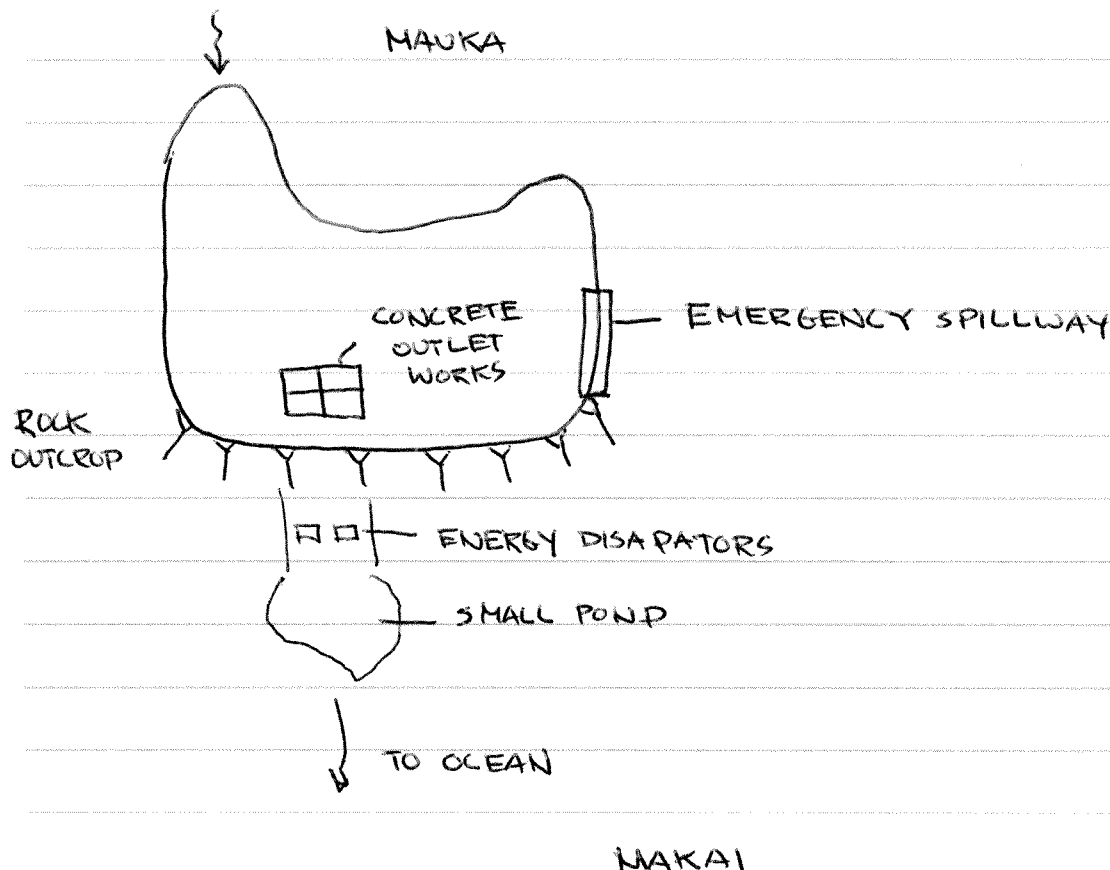 MAUKA
CONCRETE
OUTLET
WORKS
EMERGENCY SPILLWAY
ROCK
OUTCROP
ENERGY DISAPATORS
SMALL POND
TO OCEAN
MAKAI